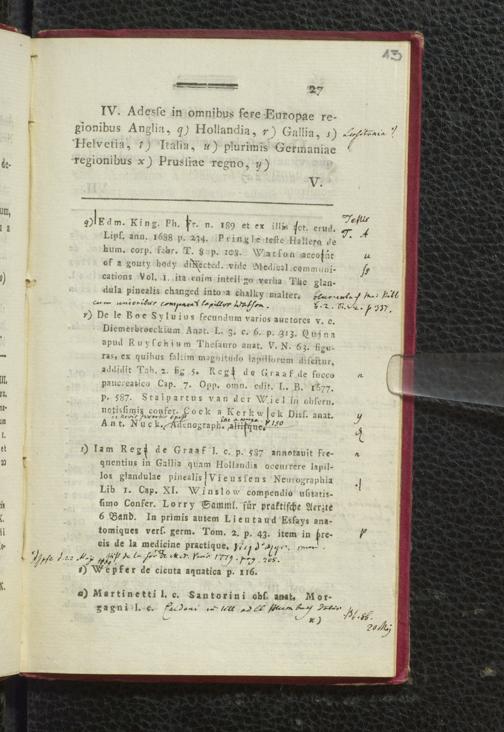 13
27
IV. Adesse in omnibus fere Europae re-
gionibus Anglia, q) Hollandia, r) Gallia, s) Lusitania?
Helvetia, t) Italia, u) plurimis Germaniae
regionibus x) Prussiae regno, y)
V.
q) Edm. King. Ph. Tr. n. 189 et ex illis act. erud.
Lips. ann. 1688 p. 234. Pringle teste Hallero de
hum. corp. fabr. T. 8. p. 108. Watson account
of a gouty body dissected. vide Medical communi-
cations Vol. 1. ita enim intelligo verba The glan-
dula pinealis changed into a chalky matter.
r) De le Boe Sylvius secundum varios auctores v. c.
Diemerbroeckium Anat. L. 3. c. 6. p. 313. Quina
apud Ruyschium Thesauro anat. V. N. 63. figu-
ras, ex quibus saltim magnitudo lapillorum discitur,
addidit Tab. 2. fig. 5. Regn de Graaf de succo
pancreatico Cap. 7. Opp. omn. edit. L. B. 1677.
p. 587. Stalpartus van der Wiel in observ.
notissimis confer. Cock a Kerkwiek Diss. anat.
Ant. Nuck. Adenograph. aliique. p 150
s) Iam Regn de Graaf l. c. p. 587 annotavit fre-
quentius in Gallia quam Hollandia occurrere lapil-
los glandulae pinealis Vieussens Neurographia
Lib 1. Cap. XI. Winslow compendio usitatis-
simo Confer. Lorry Samml. für praktische Aerzte
6 Band. In primis autem Lieutaud Essays ana-
tomiques vers. germ. Tom. 2. p. 43. item in pre-
cis de la medicine practique.
Hist. de la Soc. de Med. Paris 1779. pag. 205.
t) Wepfer de cicuta aquatica p. 116.
u) Martinetti l. c. Santorini obs. anat. Mor-
gagni l. c.
x)